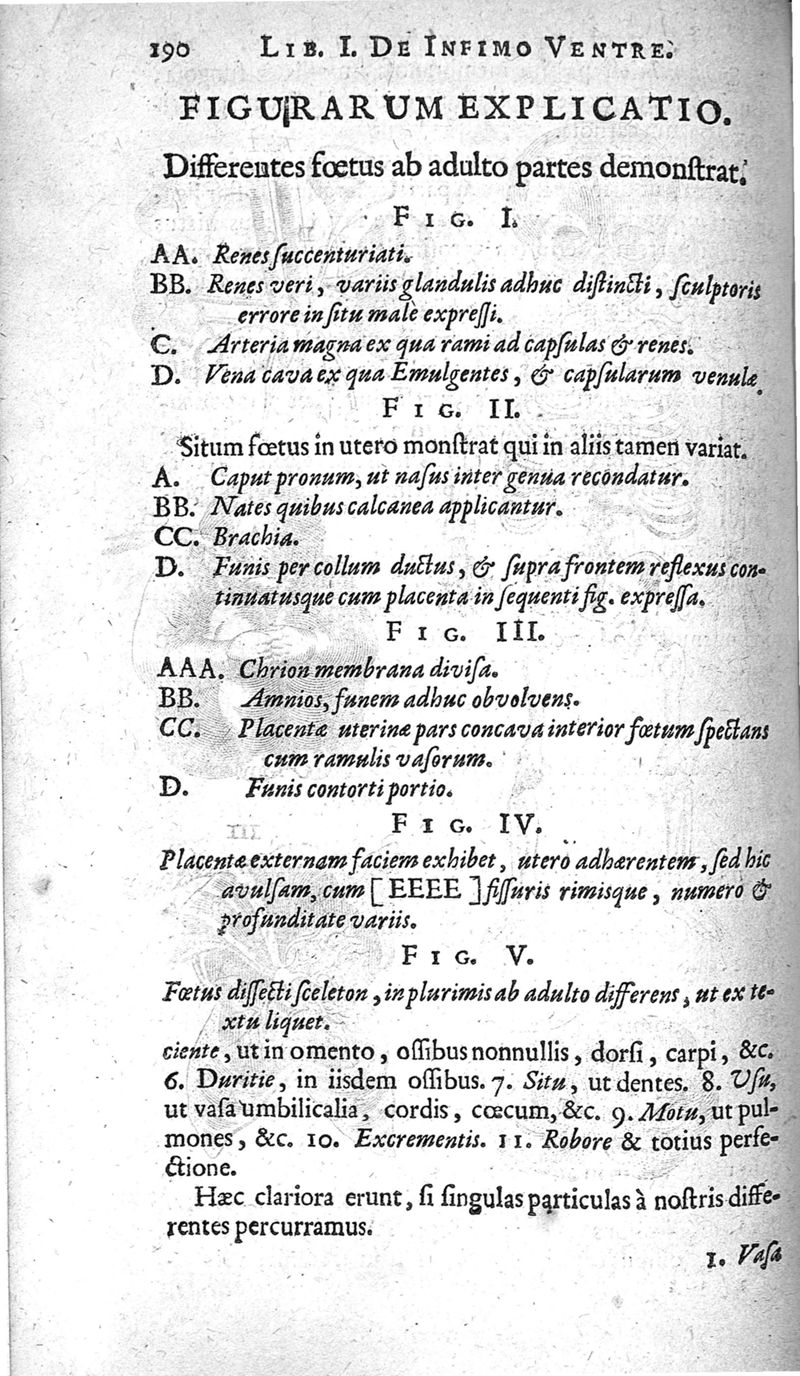 190 LIB. I. DE INFIMO VENTRE.
FIGURARUM EXPLICATIO.
Differentes fœtus ab adulto partes demonſtrat.
FIG. I.
AA. Renes ſuccenturiati.
BB. Renes veri, variis glandulis adhuc diſtincti, ſculptoris
errore in ſitu male expreſſi.
C. Arteria magna ex qua rami ad capſulas & renes.
D. Vena cava ex qua Emulgentes, & capſularum venulæ.
FIG. II.
Situm fœtus in utero monſtrat qui in aliis tamen variat.
A. Caput pronum, ut naſus inter genua recondatur.
BB. Nates quibus calcanea applicantur.
CC. Brachia.
D. Funis per collum ductus, & ſupra frontem reflexus con-
tinuatusque cum placenta in ſequenti fig. expreſſa.
FIG. III.
AAA. Chrion membrana diviſa.
BB. Amnios, funem adhuc obvolvens.
CC. Placentæ uterinæ pars concava interior fœtum ſpectans
cum ramulis vaſorum.
D. Funis contorti portio.
FIG. IV.
Placentæ externam faciem exhibet, utero adhærentem, ſed hic
avulſam, cum [EEEE] fiſſuris rimisque, numero &
profunditate variis.
FIG. V.
Fœtus diſſecti ſceleton, in plurimis ab adulto differens, ut ex te-
xtu liquet.
ciente, ut in omento, oſſibus nonnullis, dorſi, carpi, &c.
6. Duritie, in iisdem oſſibus. 7. Situ, ut dentes. 8. Uſu,
ut vaſa umbilicalia, cordis, cœcum, &c. 9. Motu, ut pul-
mones, &c. 10. Excrementis. 11. Robore & totius perfe-
ctione.
Hæc clariora erunt, ſi ſingulas particulas à noſtris diffe-
rentes percurramus.
1. Vaſa